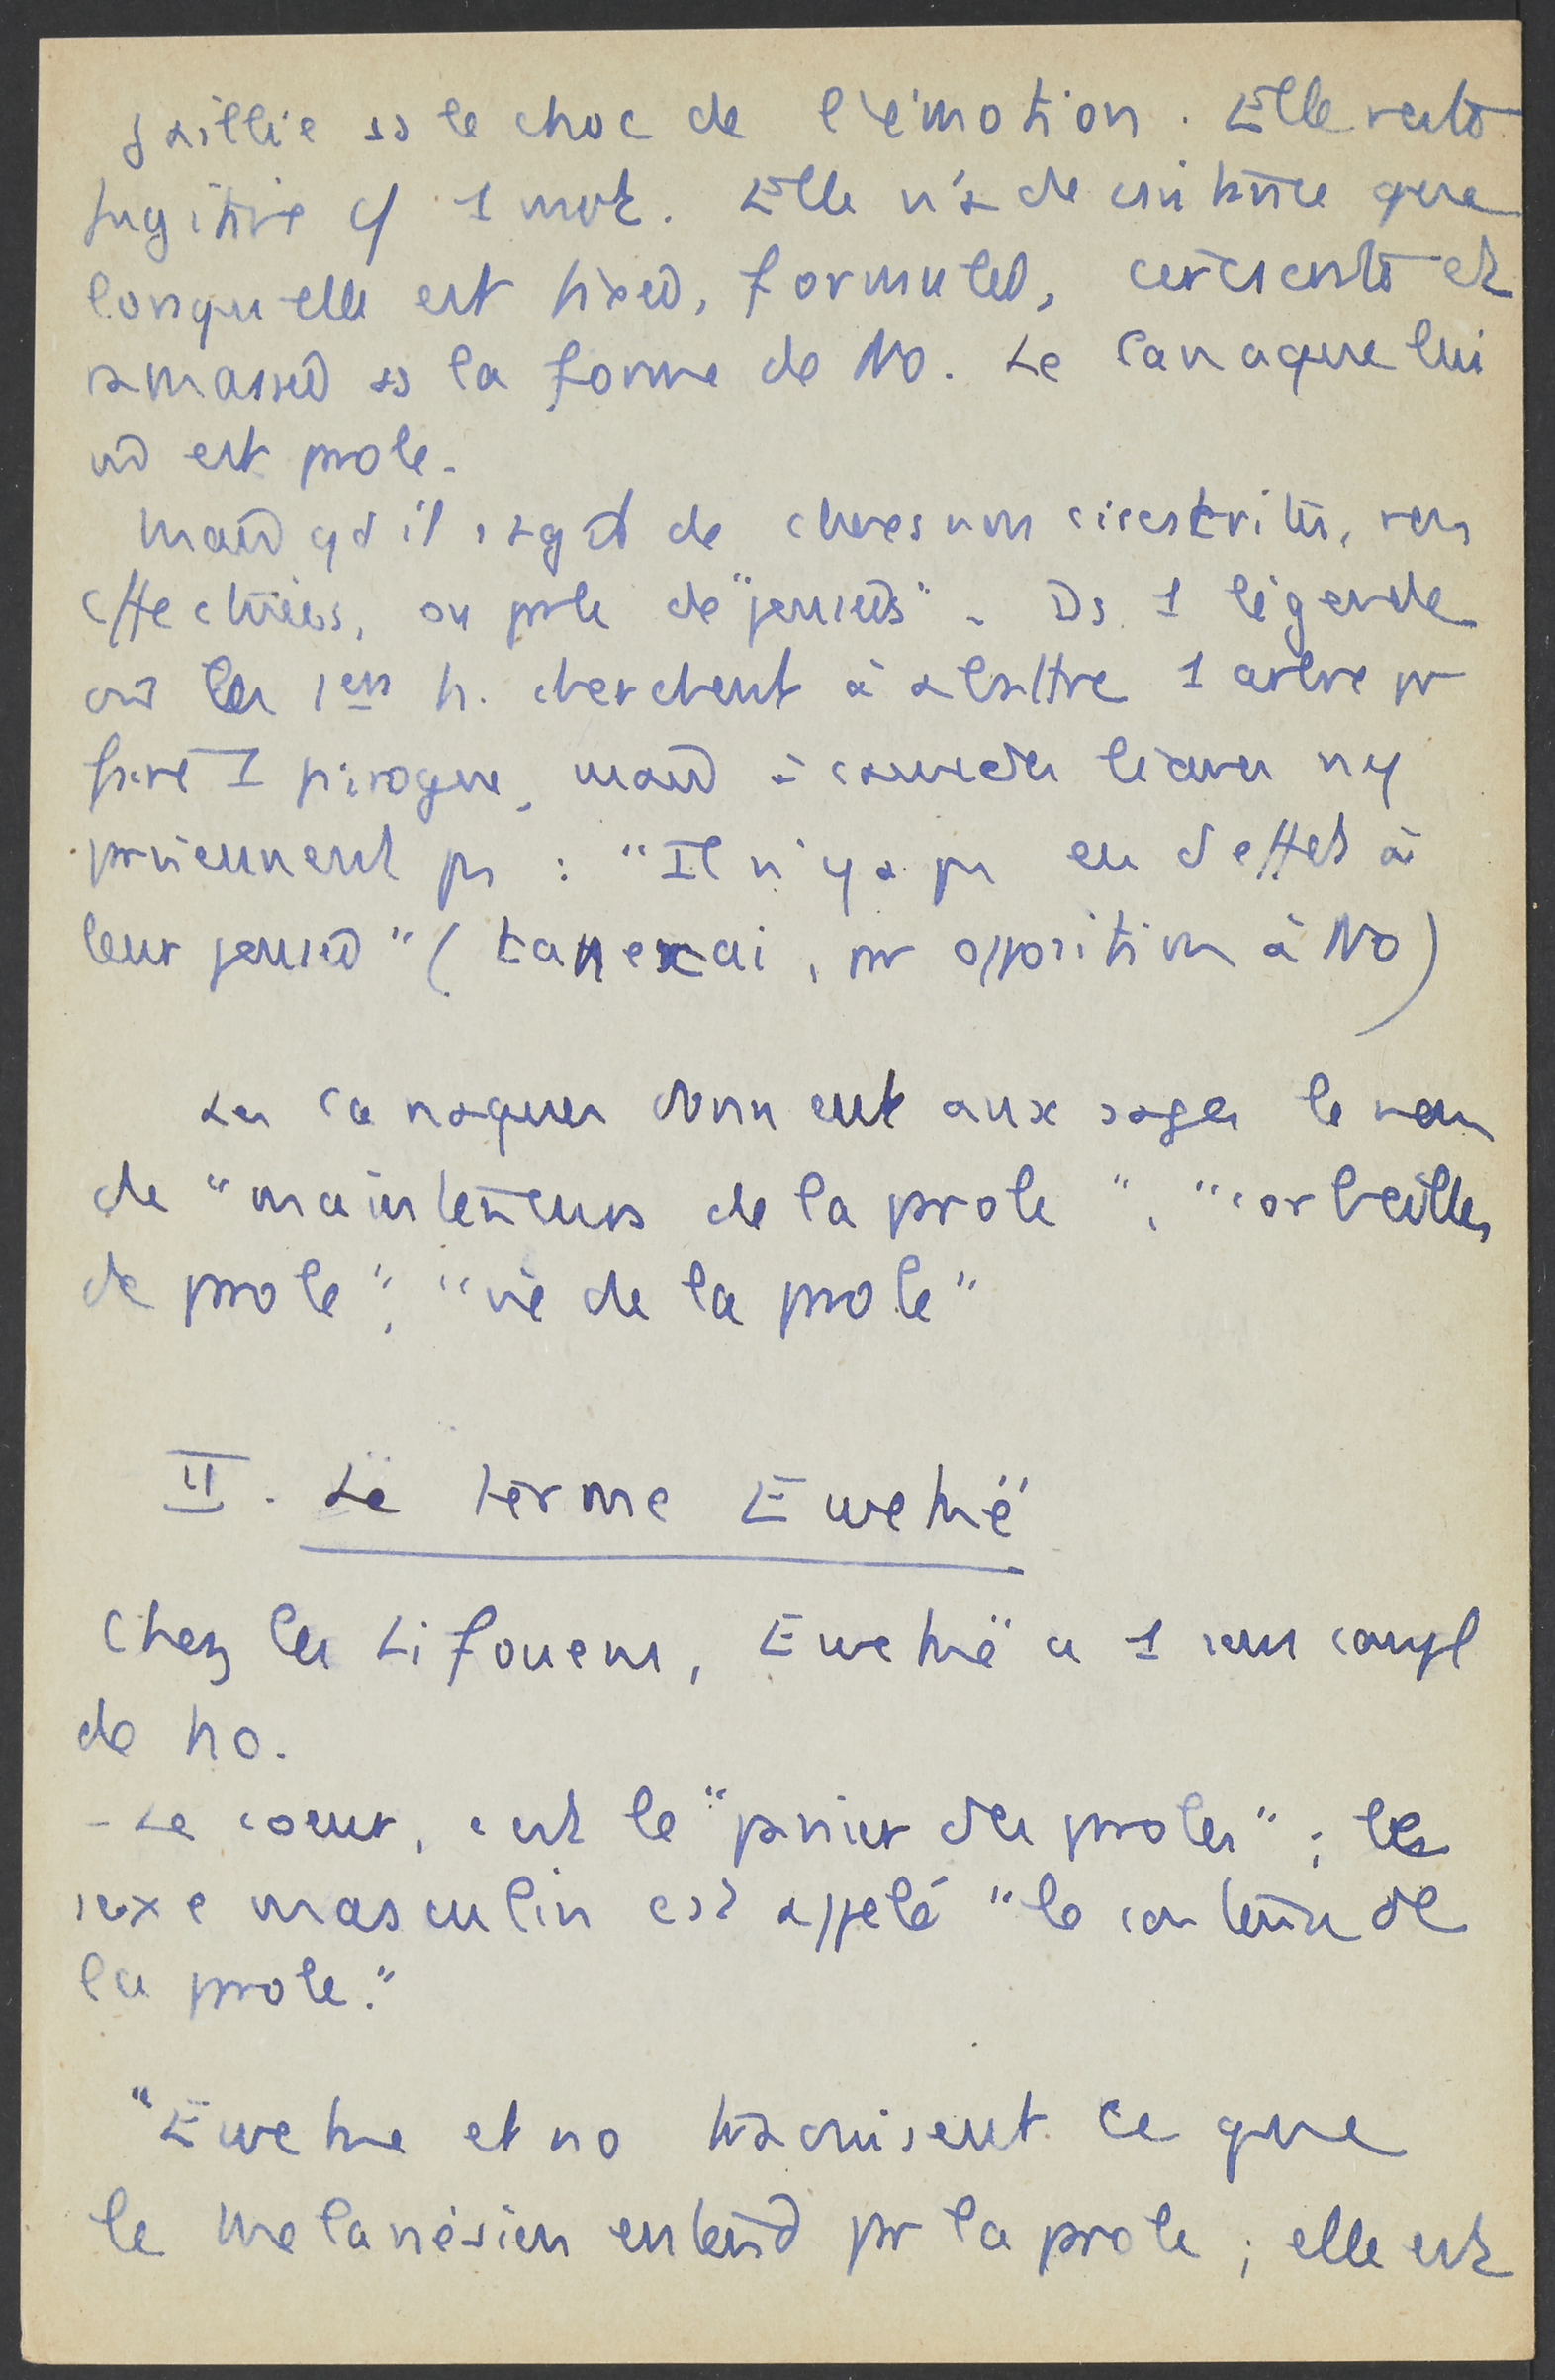 jaillie ss le choc de l'émotion. Elle reste
fugitive cf 1 mot. Elle n'a de existence que
lorsqu'elle est fixée, formulée, et
ramassée ss la forme de NO. Le Canaque lui
est prole.
Mais qd il s'agit de choses non circonscrites, non
effectuées, on prle de "pensées". Ds 1 légende
où les 1ers h. cherchent à abattre 1 arbre pr
faire 1 pirogue, mais n'y
prviennent ps : "Il n'y a ps eu d'effet à
leur pensée" (tanexai, pr opposition à NO)
Les canaques donnent aux sages le nom
de "mainteneurs de la prole", "corbeilles
de prole", "vie de la prole"
II. Le terme Ewekë
Chez les Lifouens, Ewekë a 1 sens compl
de no.
- Le coeur, c'est le "panier des proles" ; le
sexe masculin est appelé "le contenu de
la prole."
"Eweke et no traduisent ce que
le mélanésien entend pr la prole ; elle est